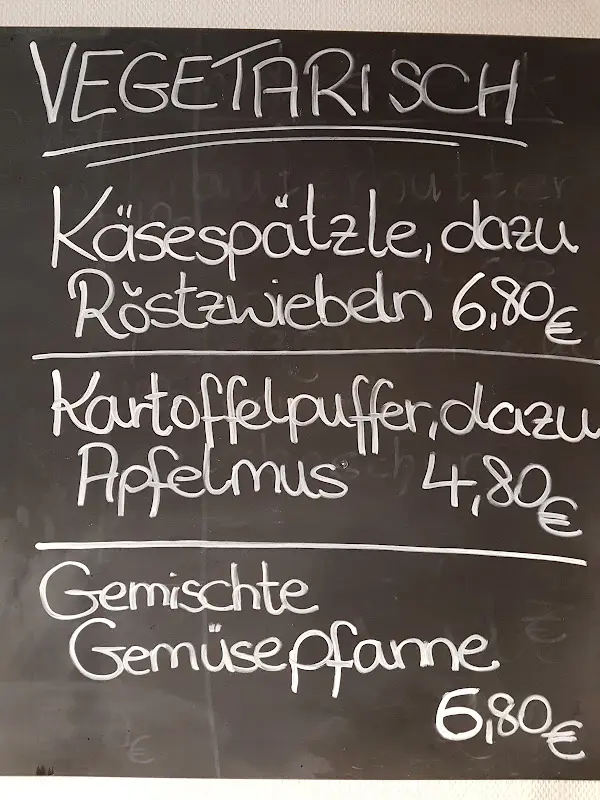 VEGETARISCH
Käsespätzle, dazu
Röstzwiebeln 6,80€
Kartoffelpuffer, dazu
Apfelmus 4,80€
Gemischte
Gemüsepfanne
6,80€